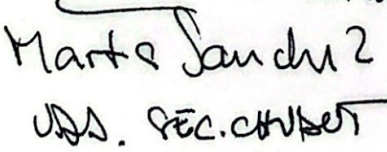 Marta Sanchez
UDA. SEC. CHUBUT